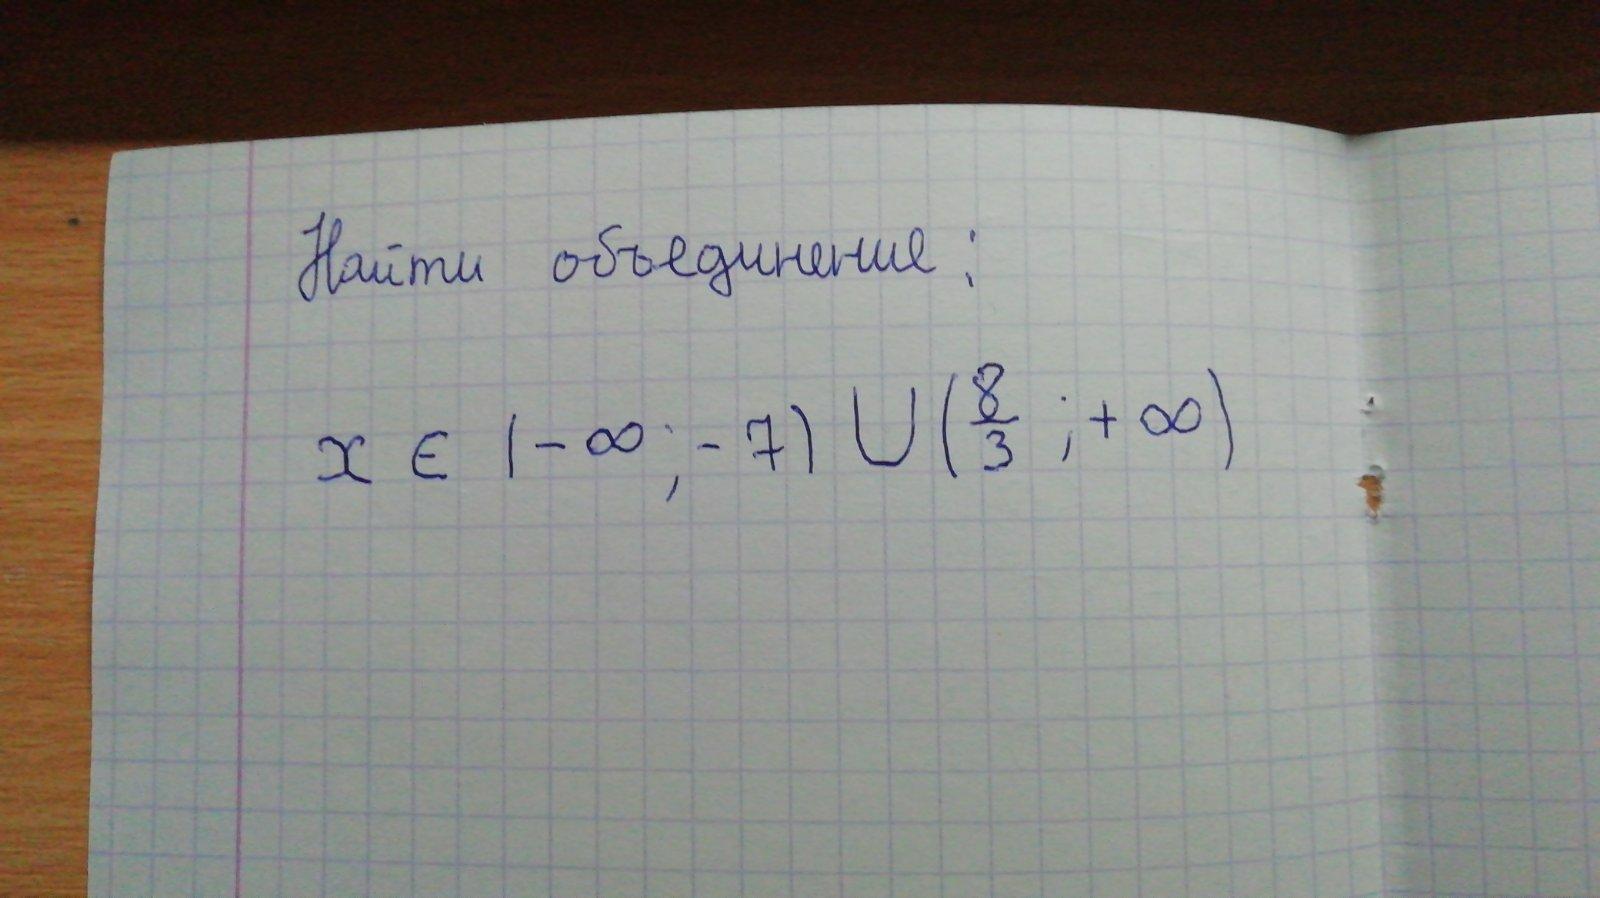 Найти объединение:
x ∈ (-∞; -7) ∪ (8/3; +∞)